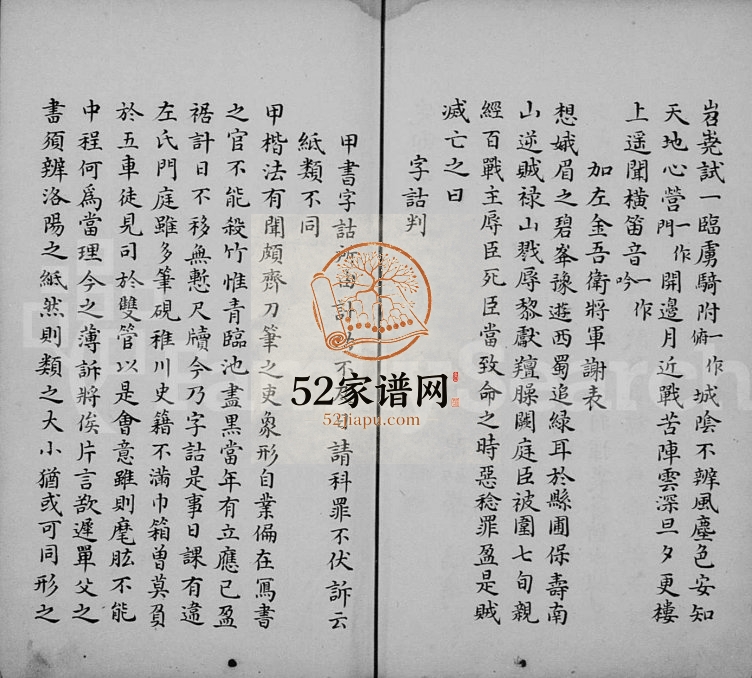 岧嶤試一臨虜騎附一作俯城陰不辨風塵色安知
天地心營一作門開邊月近戰苦陣雲深旦夕更樓
上遥聞橫笛音一作吟
加左金吾衛將軍謝表
想娥眉之碧峯豫遊西蜀追綠耳於縣圃保壽南
山逆賊禄山戮辱黎獻羶臊闕庭臣被圍七旬親
經百戰主辱臣死臣當致命之時惡稔罪盈是賊
滅亡之日
字詁判
甲書字詁所由計 不 請科罪不伏訴云
紙類不同
甲楷法有聞頗齊刀筆之吏象形自業偏在寫書
之官不能殺竹惟青臨池盡黑當年有立應已盈
裾計日不移無慙尺牘今乃字詁是事日課有違
左氏門庭雖多筆硯稚川史籍不滿巾箱曾莫負
於五車徒見司於雙管以是會意雖則麾肱不能
中程何爲當理今之薄訴將俟片言敬遲單父之
書須辨洛陽之紙然則類之大小猶或可同形之
52家谱网
52jiapu.com